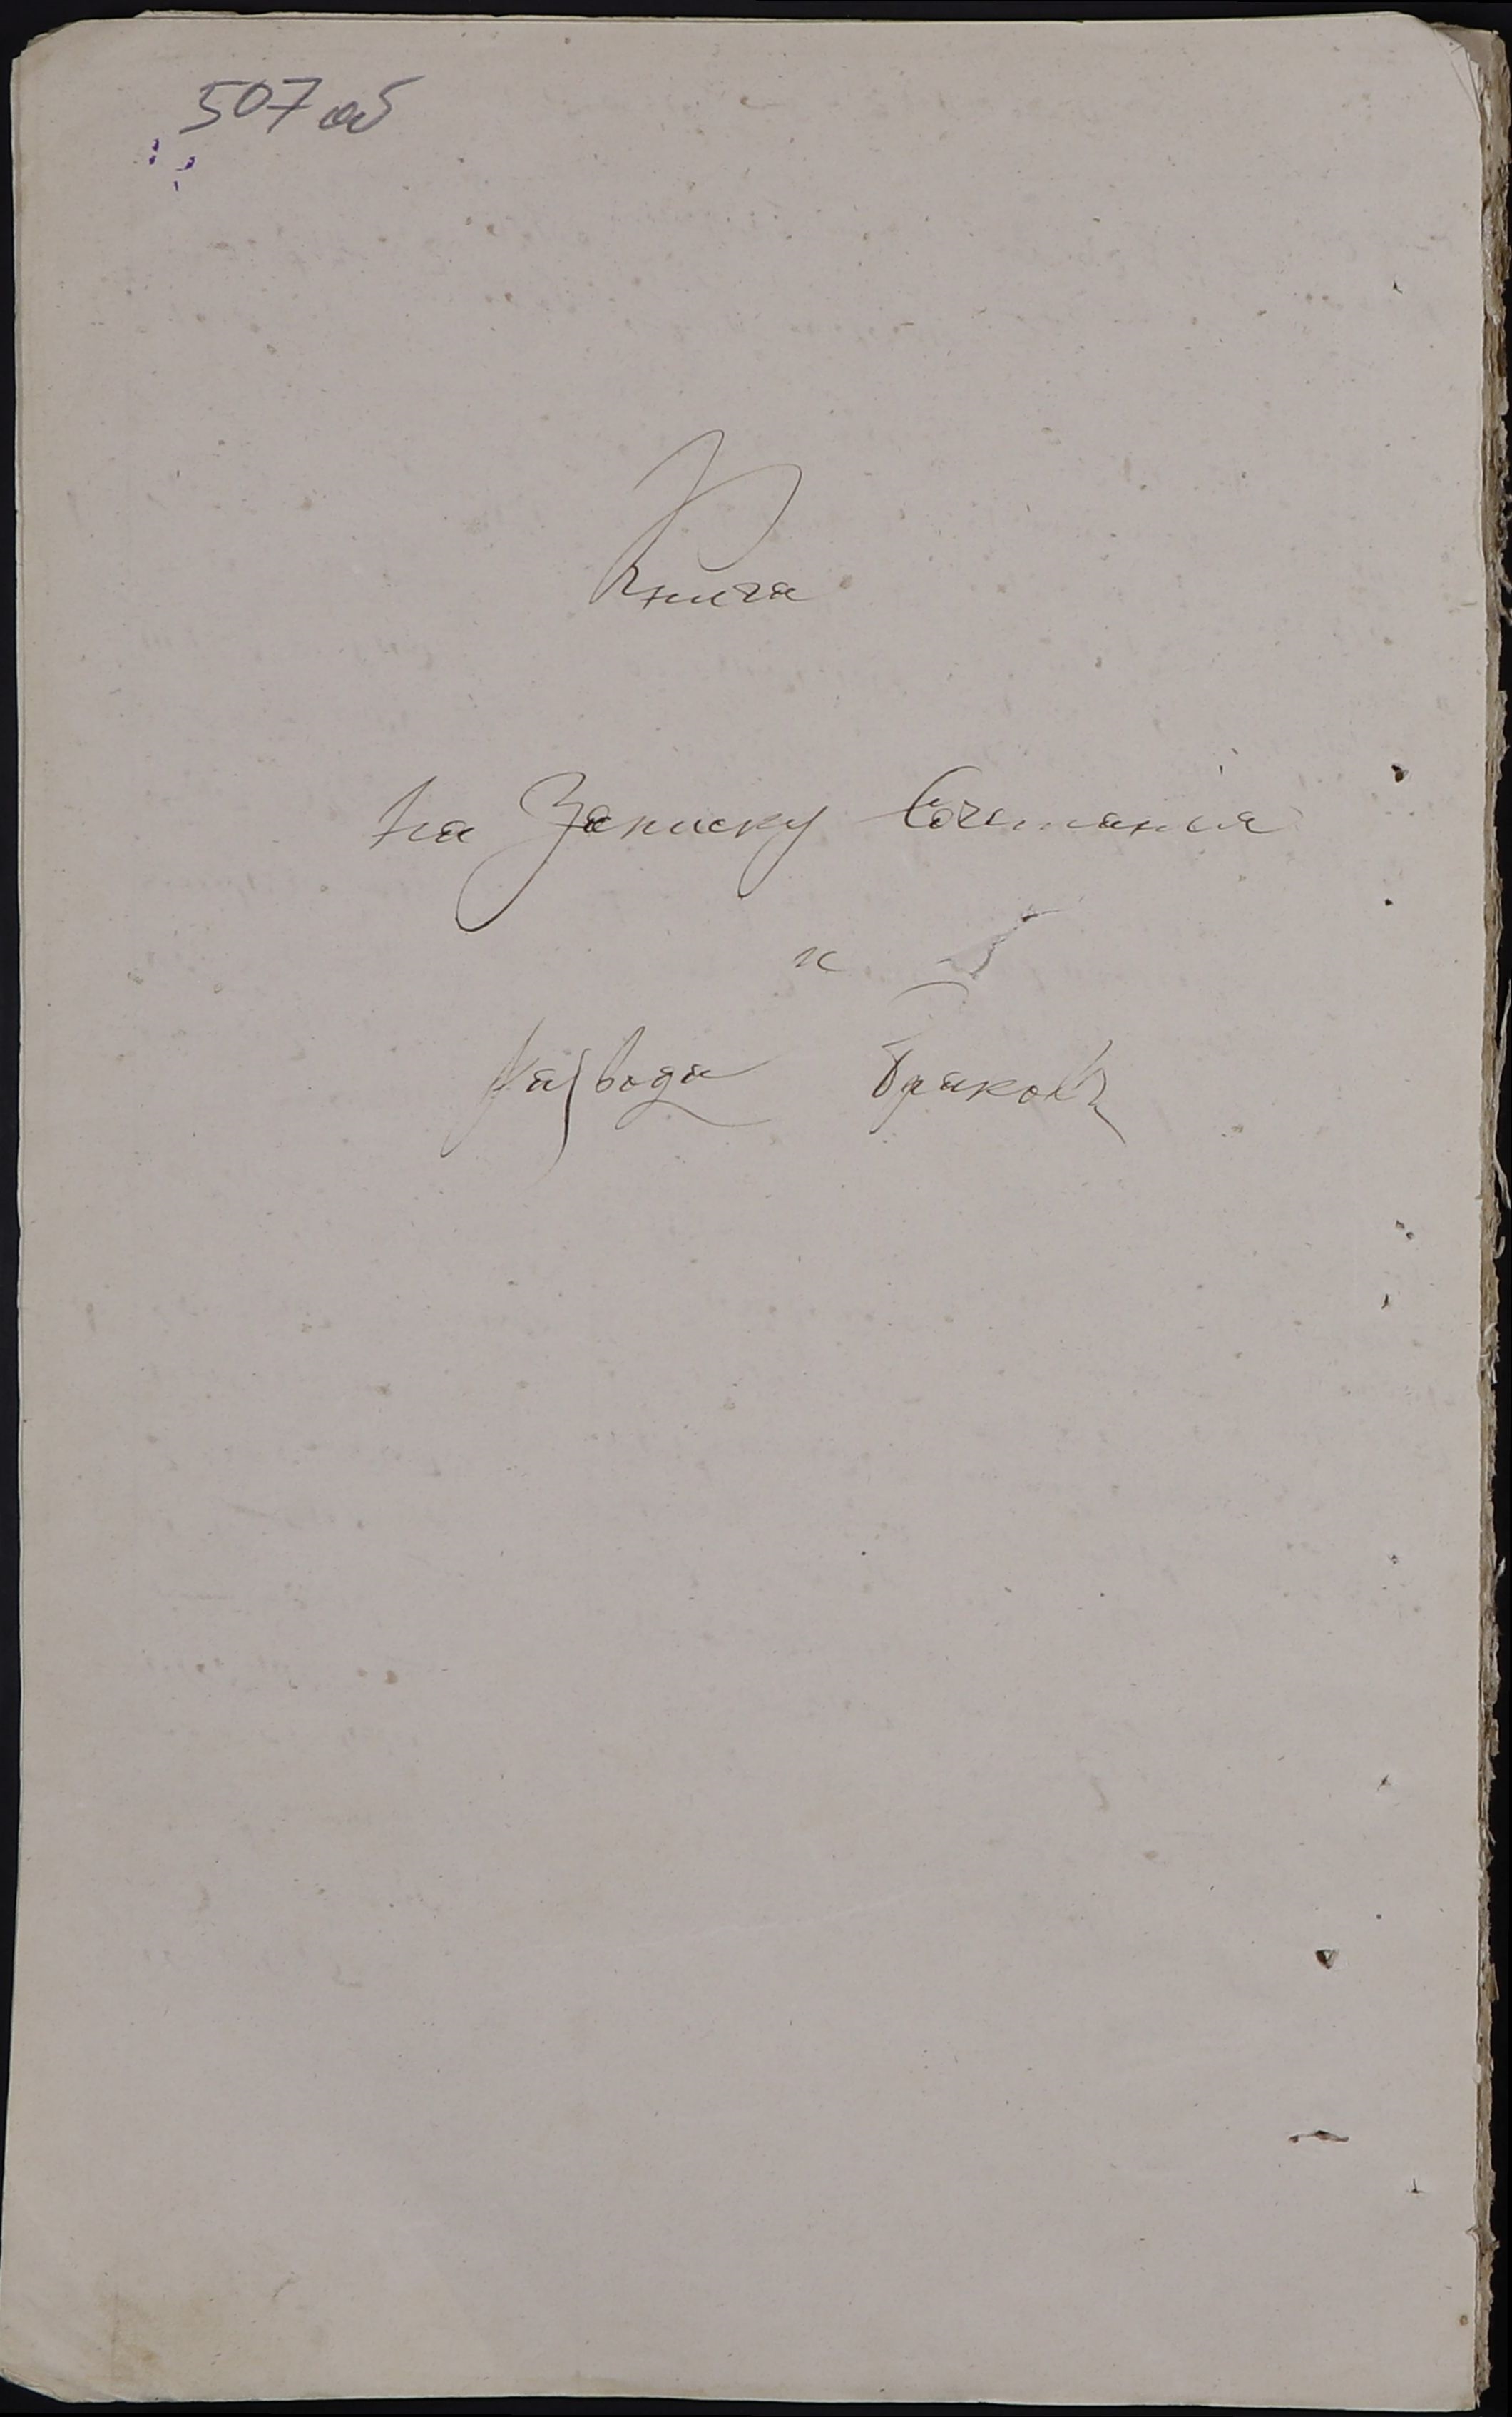 507 об
Книга
на Записку Сочетания
и
Развода Браковъ